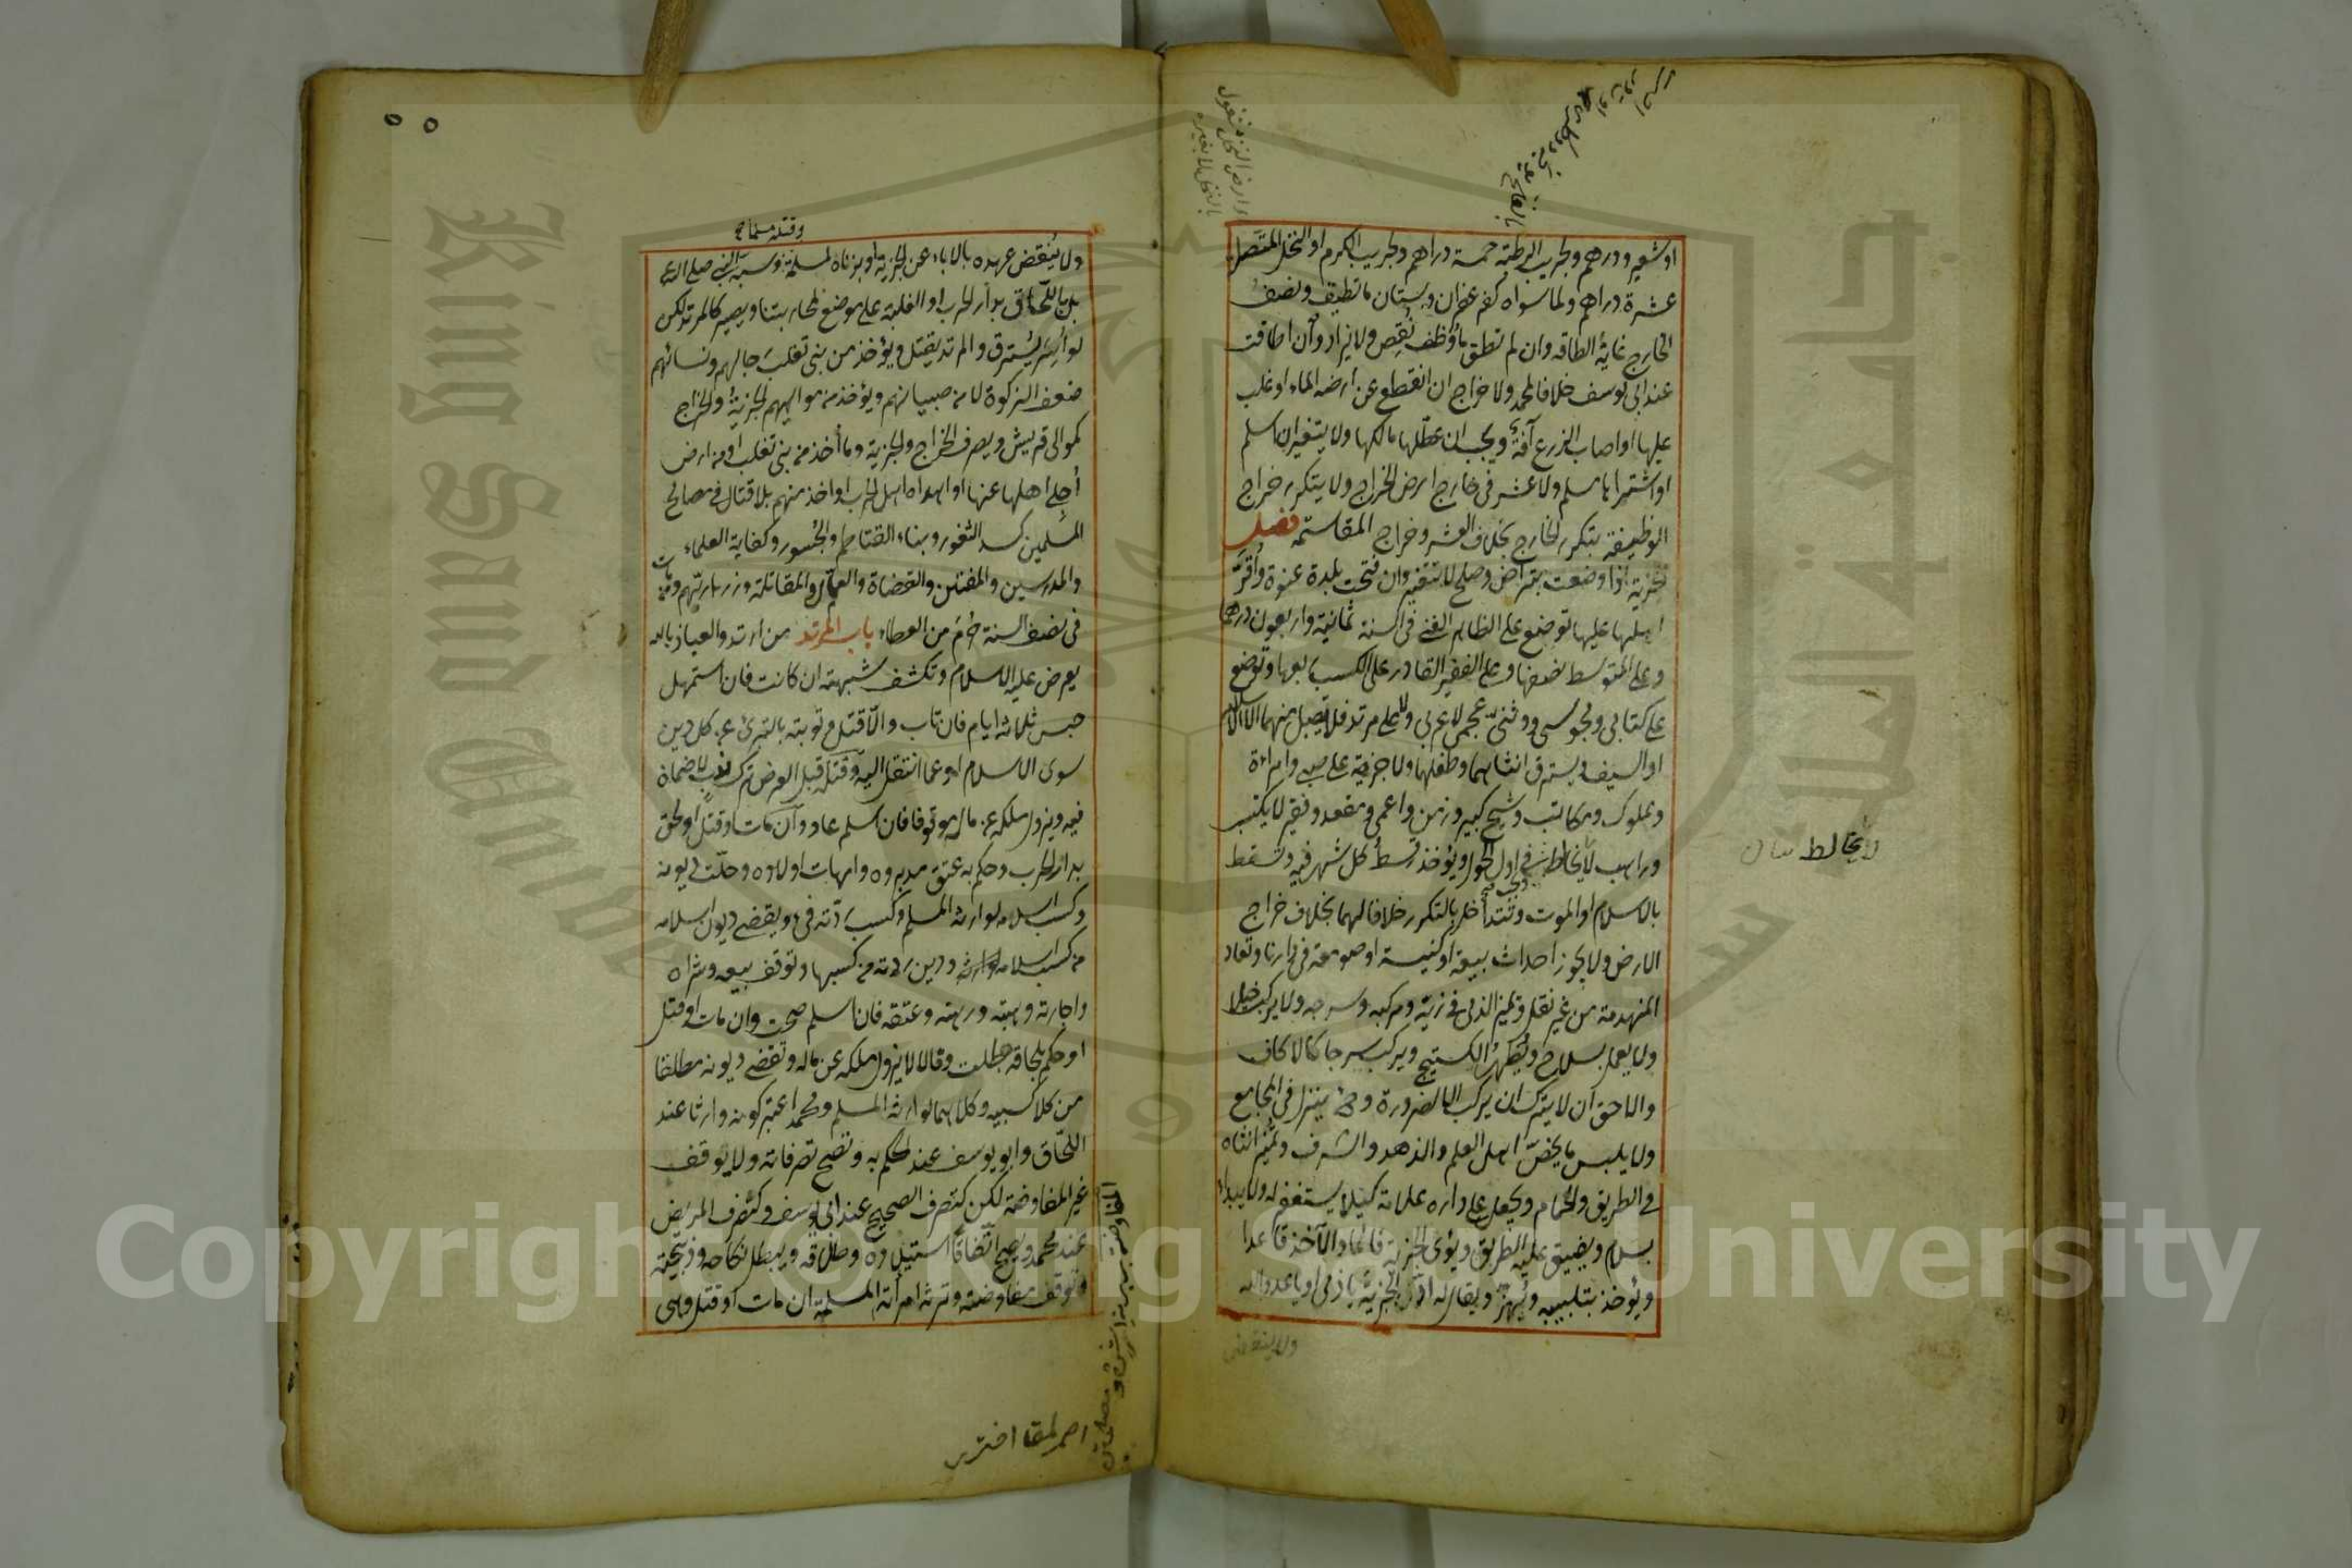 او شعير ودرهم ولجريب الرطبة خمسة دراهم ولجريب الكرم او النخل المتصل
عشرة دراهم ولما سواه كزعفران وبستان ما تطيق ونصف
الخارج غاية الطاقة وان لم تطق ما وظف نقص ولا يزاد وان اطاقت
عند ابي يوسف خلافا لمحمد ولا خراج ان انقطع عن ارضه الماء او غلب
عليها او اصاب الزرع آفة ويجب ان عطلها مالكها ولا يتغير ان اسلم
او اشتراها مسلم ولا عشر في خارج ارض الخراج ولا يتكرر خراج
الوظيفة بتكرر الخارج بخلاف العشر وخراج المقاسمة فصل
الجزية اذا وضعت بتراض وصلح لا تتغير وان فتحت بلدة عنوة واقر
اهلها عليها توضع على الظاهر الغنى في السنة ثمانية واربعون درهما
وعلى المتوسط نصفها وعلى الفقير القادر على الكسب ربعها وتوضع
على كتابي ومجوسي ووثني عجمي لا عربي ولا على مرتد فلا يقبل منهما الا الاسلام
او السيف ويسترق انثاهما وطفلهما ولا جزية على صبي وامراءة
ومملوك ومكاتب وشيخ كبير وزمن واعمى ومقعد وفقير لا يكتسب
وراهب لا يخالط في اول الحول ويؤخذ قسط كل شهر فيه وتسقط
بالاسلام او الموت وتتداخل بالتكرر خلافا لهما بخلاف خراج
الارض ولا يجوز احداث بيعة او كنيسة او صومعة في دارنا وتعاد
المنهدمة من غير نقل ويميز الذمي في زيه ومركبه وسرجه ولا يركب خيلا
ولا يعمل بسلاح ويظهر الكستيج ويركب سرجا كالاكاف
والاحق ان لا يترك ان يركب الا لضرورة وح ينزل في المجامع
ولا يلبس ما يخص اهل العلم والزهد والشرف وتميز انثاه
في الطريق والحمام ويجعل على داره علامة كيلا يستغفر له ولا يبداء
بسلام ويضيق عليه الطريق ويؤدى الجزية قائما والآخذ قاعدا
ويؤخذ بتلبيبه ويهز ويقال له اد الجزية يا ذمي او يا عدو الله
ولا ينتقض
لا يخالط
وقتله مسلما
ولا ينتقض عهده بالاباء عن الجزية او بزناه بمسلمة وسب النبي صلى الله
بل باللحاق بدار الحرب او الغلبة على موضع لمحاربتنا ويصير كالمرتد لكن
لو اسر يسترق والمرتد يقتل ويؤخذ من بني تغلب رجالهم ونسائهم
ضعف الزكوة لا من صبيانهم ويؤخذ من مواليهم الجزية والخراج
كموالى قريش ويصرف الخراج والجزية وما أخذ من بنى تغلب او من ارض
أجلى اهلها عنها او اهداه اهل الحرب او اخذ منهم بلا قتال في مصالح
المسلمين كسد الثغور وبناء القناطر والجسور وكفاية العلماء
والمدرسين والمفتين والقضاة والعمال والمقاتلة وذراريهم ومن مات
في نصف السنة حرم من العطاء باب المرتد من ارتد والعياذ بالله
يعرض عليه الاسلام وتكشف شبهته ان كانت فان استمهل
حبس ثلاثة ايام فان تاب والا قتل وتوبته بالتبرئ عن كل دين
سوى الاسلام او عما انتقل اليه وقتله قبل العرض ترك ندب لا ضمان
فيه ويزول ملكه عن ماله موقوفا فان اسلم عاد وان مات او قتل او لحق
بدار الحرب وحكم به عتق مدبروه وامهات اولاده وحلت ديونه
وكسب اسلامه لوارثه المسلم وكسب ردته فئ ويقضى ديون اسلامه
من كسب اسلامه ودين ردته من كسبها وتوقف بيعه وشراه
واجارته وهبته ورهنه وعتقه فان اسلم صحت وان مات او قتل
او حكم بلحاقه بطلت وقالا لا يزول ملكه عن ماله وتقضى ديونه مطلقا
من كلا كسبيه وكلاهما لوارثه المسلم ومحمد اعتبر كونه وارثا عند
اللحاق وابو يوسف عند الحكم به وتصح تصرفاته ولا يوقف
غير المفاوضة لكن كتصرف الصحيح عند ابي يوسف وكتصرف المريض
عند محمد ويصح اتفاقا استيلاده وطلاقه ويبطل نكاحه وذبيحته
وتوقف مفاوضته وترثه امرأته المسلمة ان مات او قتل وهى
Copyright © King Saud University
King Saud University
جامعة الملك سعود